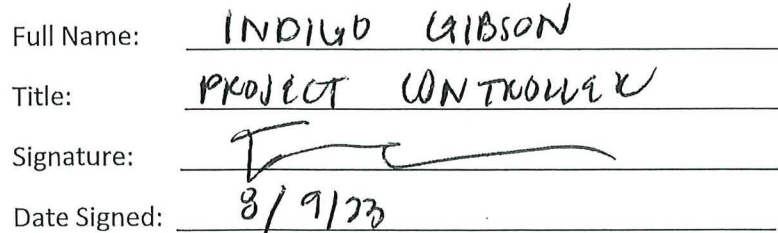 Full Name: INDIGO GIBSON
Title: PROJECT CONTROLLER
Signature:
Date Signed: 8/9/23